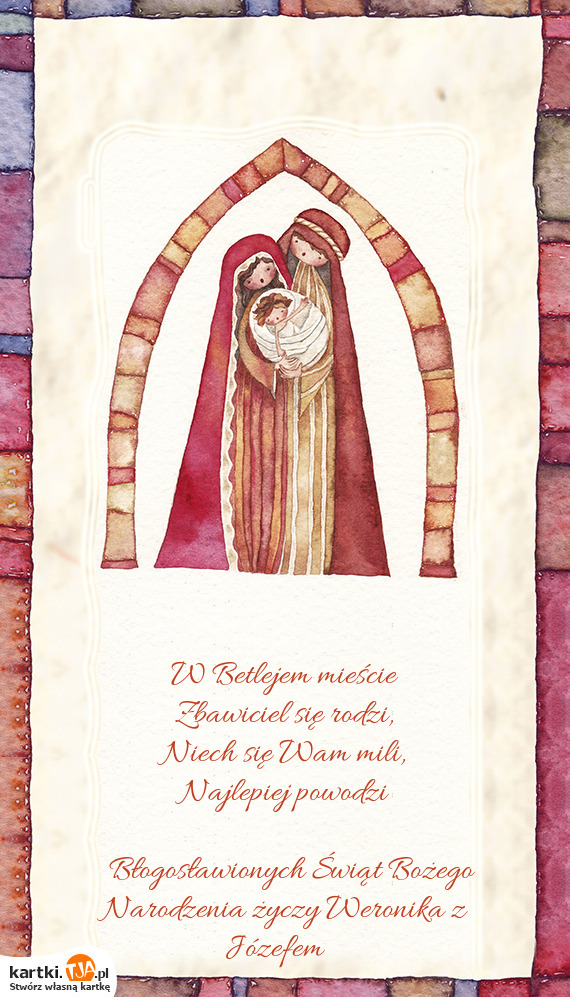 W Betlejem mieście
Zbawiciel się rodzi,
Niech się Wam mili,
Najlepiej powodzi
Błogosławionych Świąt Bożego
Narodzenia życzy Weronika z
Józefem
kartki.TJA.pl
Stwórz własną kartkę